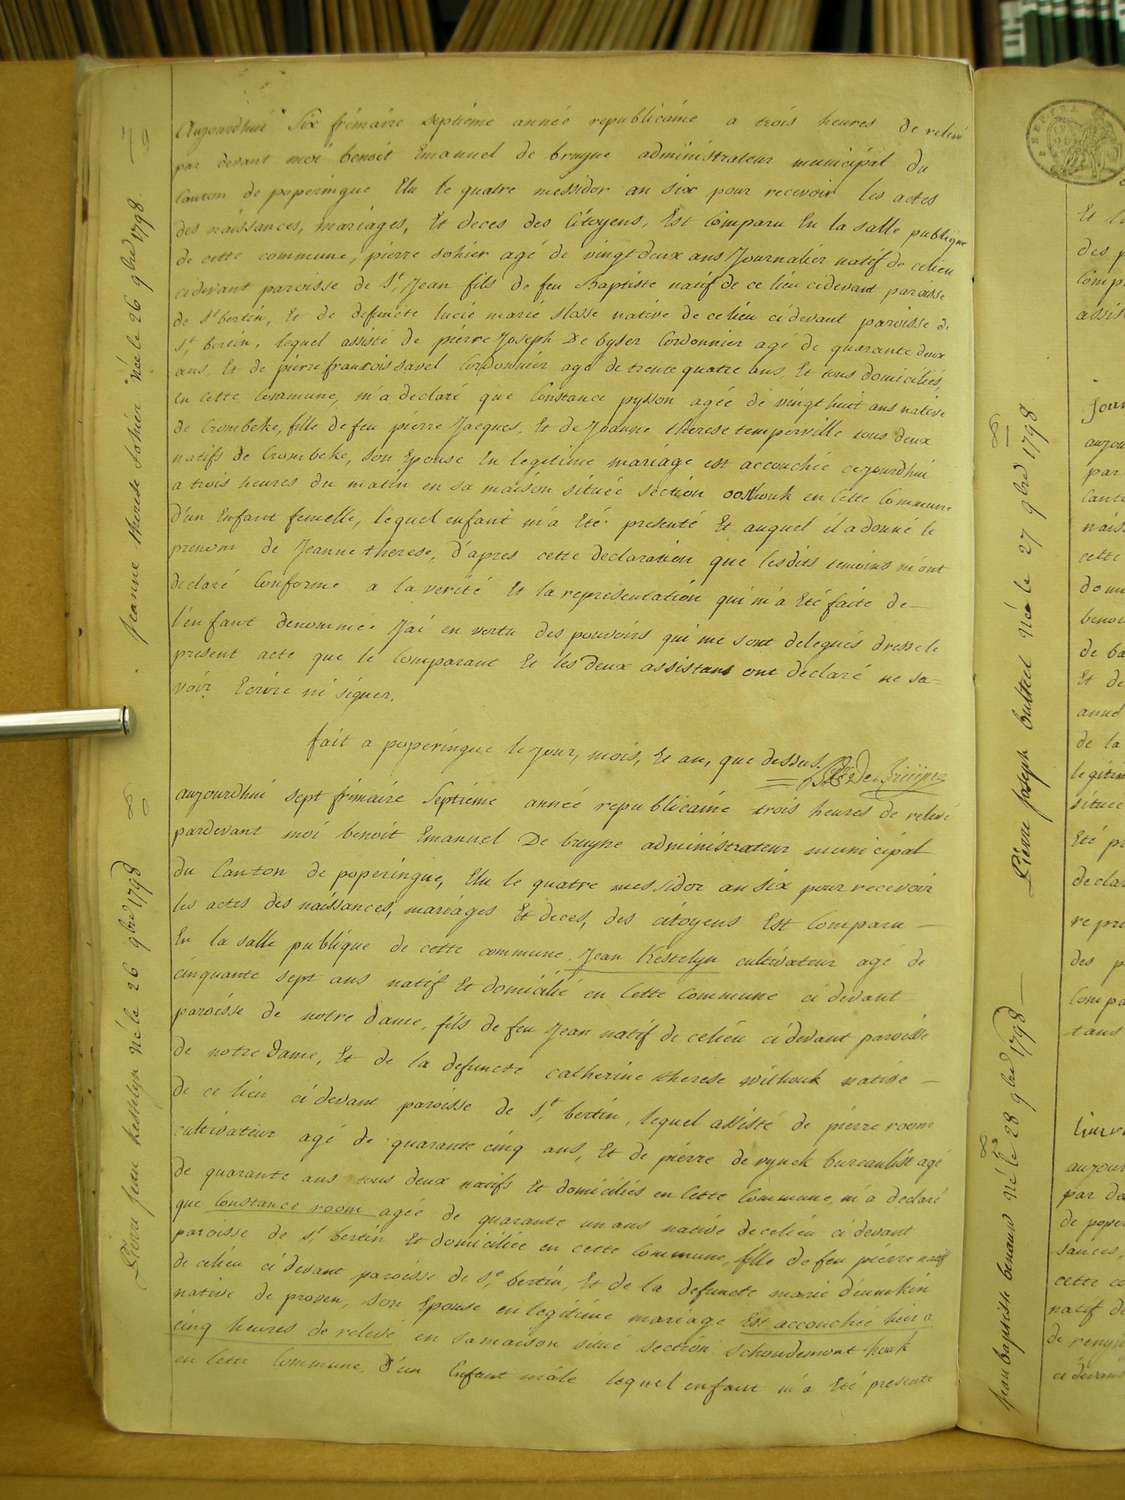 79
Jeanne therese Sohier née le 26 9bre 1798
aujourdhui Six frimaire septiéme année republicaine a trois heures de relevé
par devant moi benoit Emanuel de bruyne administrateur municipal du
Canton de poperingue Elu le quatre messidor an six pour recevoir les actes
des naissances, mariages, Et deces des Citoyens, Est Comparu En la salle publique
de cette commune, pierre sohier agé de vingt deux ans Journalier natif de ce lieu
cidevant paroisse de St Jean fils de feu Baptiste natif de ce lieu cidevant paroisse
de St bertin, Et de defuncte lucie marie slosse native de ce lieu ci devant paroisse de
St bertin, lequel assisté de pierre Joseph De Cyser Cordonnier agé de quarante deux
ans, Et de pierre francois savel Cordonnier agé de trente quatre ans, Et tous domiciliés
en Cette Commune, m'a declaré que Constance pysson agée de vingt huit ans native
de Crombeke, fille de feu pierre Jacques, Et de Joanne therese temperville tous deux
natifs de Crombeke, son Epouse En legitime mariage est accouchée cejourdhui
a trois heures du matin en sa maison située section oosthouk en Cette Commune
d'un Enfant femelle, lequel enfant m'a Eté presenté Et auquel il a donné le
prenom de Jeanne therese, d'apres cette declaration que lesdits temoins m'ont
declaré Conforme a la verité Et la representation qui m'a Eté faite de
l'enfant denommée J'ai en vertu des pouvoirs qui me sont delegués dressé le
present acte que le Comparant Et les deux assistans ont declaré ne sa=
voir Ecrire ni signer.
fait a poperingue le jour, mois, Et an, que dessus.
80
Pierre Jean kestelyn né le 26 9bre 1798
aujourdhui sept frimaire Septieme année republicaine trois heures de relevé
pardevant moi benoit Emanuel De bruyne administrateur municipal
du Canton de poperingue, Elu le quatre messidor an six pour recevoir
les actes des naissances, mariages Et deces, des citoyens Est Comparu
En la salle publique de cette commune Jean Kestelyn cultivateur agé de
cinquante sept ans natif Et domicilié en Cette Commune ci devant
paroisse de notre dame, fils de feu Jean natif de ce lieu ci devant paroisse
de notre Dame, Et de la defuncte catherine therese withouk native
de ce lieu ci devant paroisse de St bertin, lequel assisté de pierre room
cultivateur agé de quarante cinq ans, Et de pierre de rynck bureauliste agé
de quarante ans tous deux natifs Et domiciliés en Cette Commune, m'a declaré
que Constance room agée de quarante un ans native de ce lieu ci devant
paroisse de St bertin Et domiciliée en cette Commune, fille de feu pierre natif
de ce lieu ci devant paroisse de St bertin, Et de la defuncte marie
native de proven, son Epouse en legitime mariage Est accouchée hier a
cinq heures de relevé en sa maison situé section Schoudemont houk
en Cette Commune, d'un Enfant mâle lequel enfant m'a Eté presenté
81
Pierre Joseph bultheel Né le 27 9bre 1798
82
Jean baptiste benaud Né le 28 9bre 1798